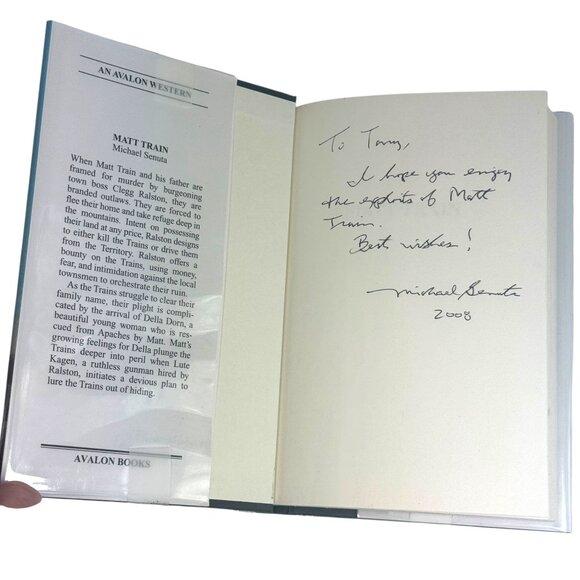 AN AVALON WESTERN
MATT TRAIN
Michael Senuta
When Matt Train and his father are
framed for murder by burgeoning
town boss Clegg Ralston, they are
branded outlaws. They are forced to
flee their home and take refuge deep in
the mountains. Intent on possessing
their land at any price, Ralston designs
to either kill the Trains or drive them
from the Territory. Ralston offers a
bounty on the Trains, using money,
fear, and intimidation against the local
townsmen to orchestrate their ruin.
As the Trains struggle to clear their
family name, their plight is compli-
cated by the arrival of Della Dorn, a
beautiful young woman who is res-
cued from Apaches by Matt. Matt's
growing feelings for Della plunge the
Trains deeper into peril when Lute
Kagen, a ruthless gunman hired by
Ralston, initiates a devious plan to
lure the Trains out of hiding.
AVALON BOOKS
To
I hope you enjoy
the exploits of Matt
Train.
Best wishes!
Michael Senuta
2008